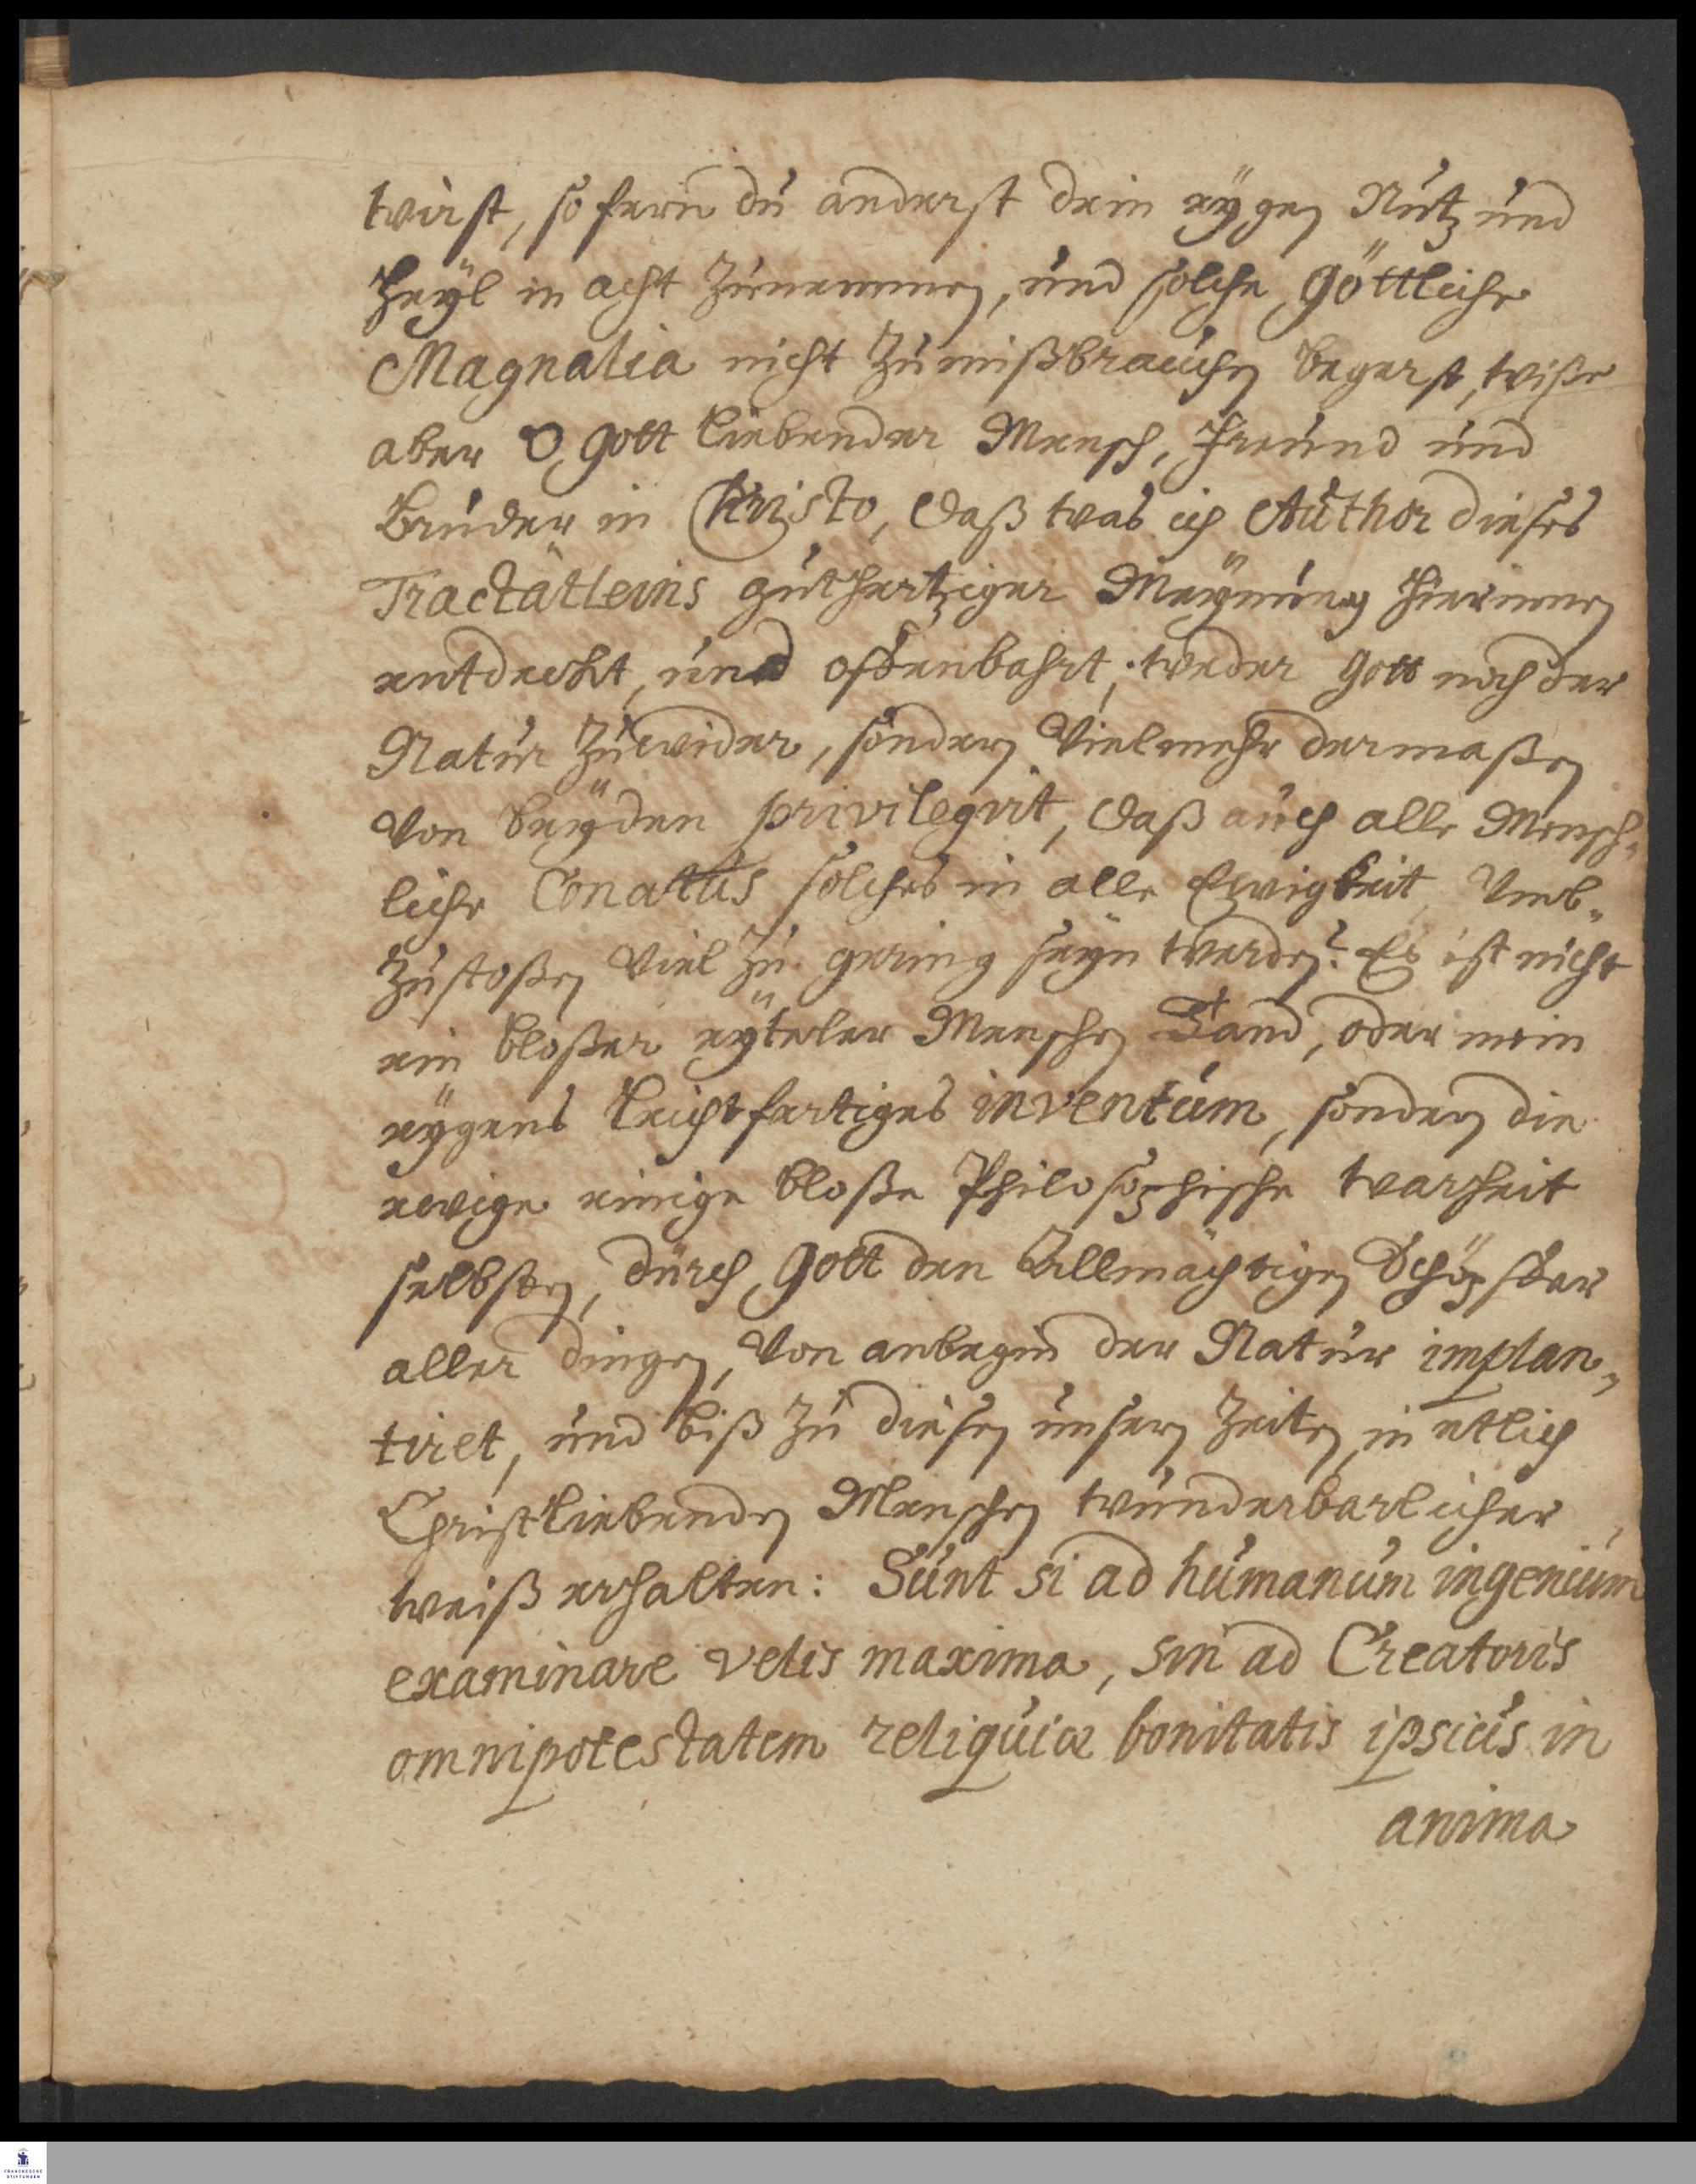 wirst, so fern du anderst dein eÿgen Nutz und
Heÿl in acht zunemmen, und solche Göttliche
Magnalia nicht zumißbrauchen begerst, wiße
aber O Gott liebender Mensch, Freund und
Bruder in Christo, daß was ich Author dieses
Tractätleins guthertziger Meÿnung hierinnen
entdeckt, und offenbahrt, weder Gott noch der
Natur zuwider, sondern Vielmehr dermaßen
Von beÿden privilegirt, daß auch alle Mensch-
liche Conatus solches in alle Ewigkeit Umb-
zustoßen Viel zu gering seÿn werden: Es ist nicht
ein bloßer eÿteler Menschen Tand, oder mein
eÿgens leichtfertiges inventum, sondern die
ewige einige bloße Philosophische warheit
selbsten, durch Gott den Allmächtigen Schöpffer
aller dingen, Von anbegin der Natur implan-
tiret, und biß zu diesen unsern Zeiten in etlich
Christliebenden Menschen wunderbarlicher
weiß erhalten: Sunt si ad humanum ingenium
examinare velis maxima, sin ad Creatoris
omnipotestatem reliquiæ bonitatis ipsius in
anima
FRANCKESCHE
STIFTUNGEN